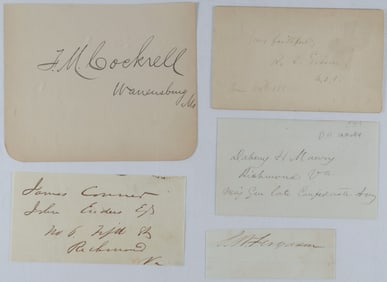 F. M. Cockrell
Warrensburg
Mo
Yours faithfully
R. L. Gibson
Dabney H Maury
Richmond Va
Maj Gen late Confederate Army
James Conner
John Enders Esq
No 6 Fifth St
Richmond
Va
S. W. Ferguson